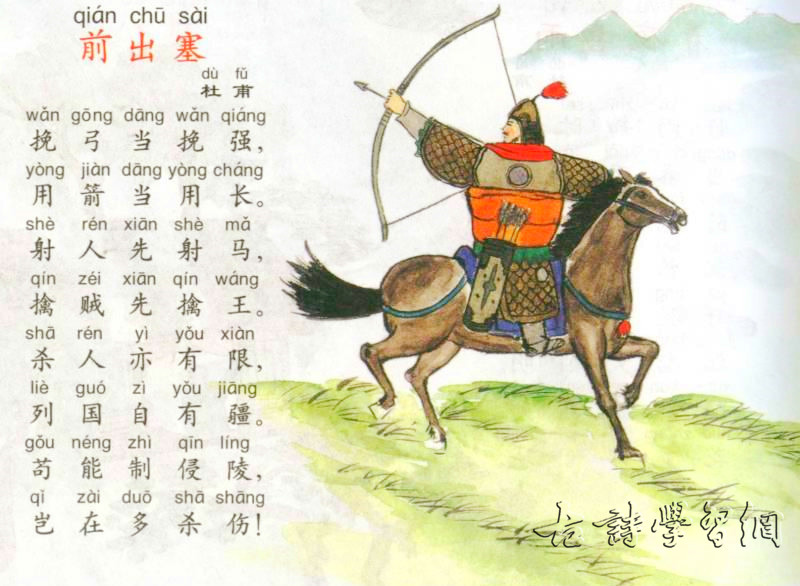 qián chū sài
前出塞
dù fǔ
杜甫
wǎn gōng dāng wǎn qiáng
挽弓当挽强，
yòng jiàn dāng yòng cháng
用箭当用长。
shè rén xiān shè mǎ
射人先射马，
qín zéi xiān qín wáng
擒贼先擒王。
shā rén yì yǒu xiàn
杀人亦有限，
liè guó zì yǒu jiāng
列国自有疆。
gǒu néng zhì qīn líng
苟能制侵陵，
qǐ zài duō shā shāng
岂在多杀伤！
古詩學習網